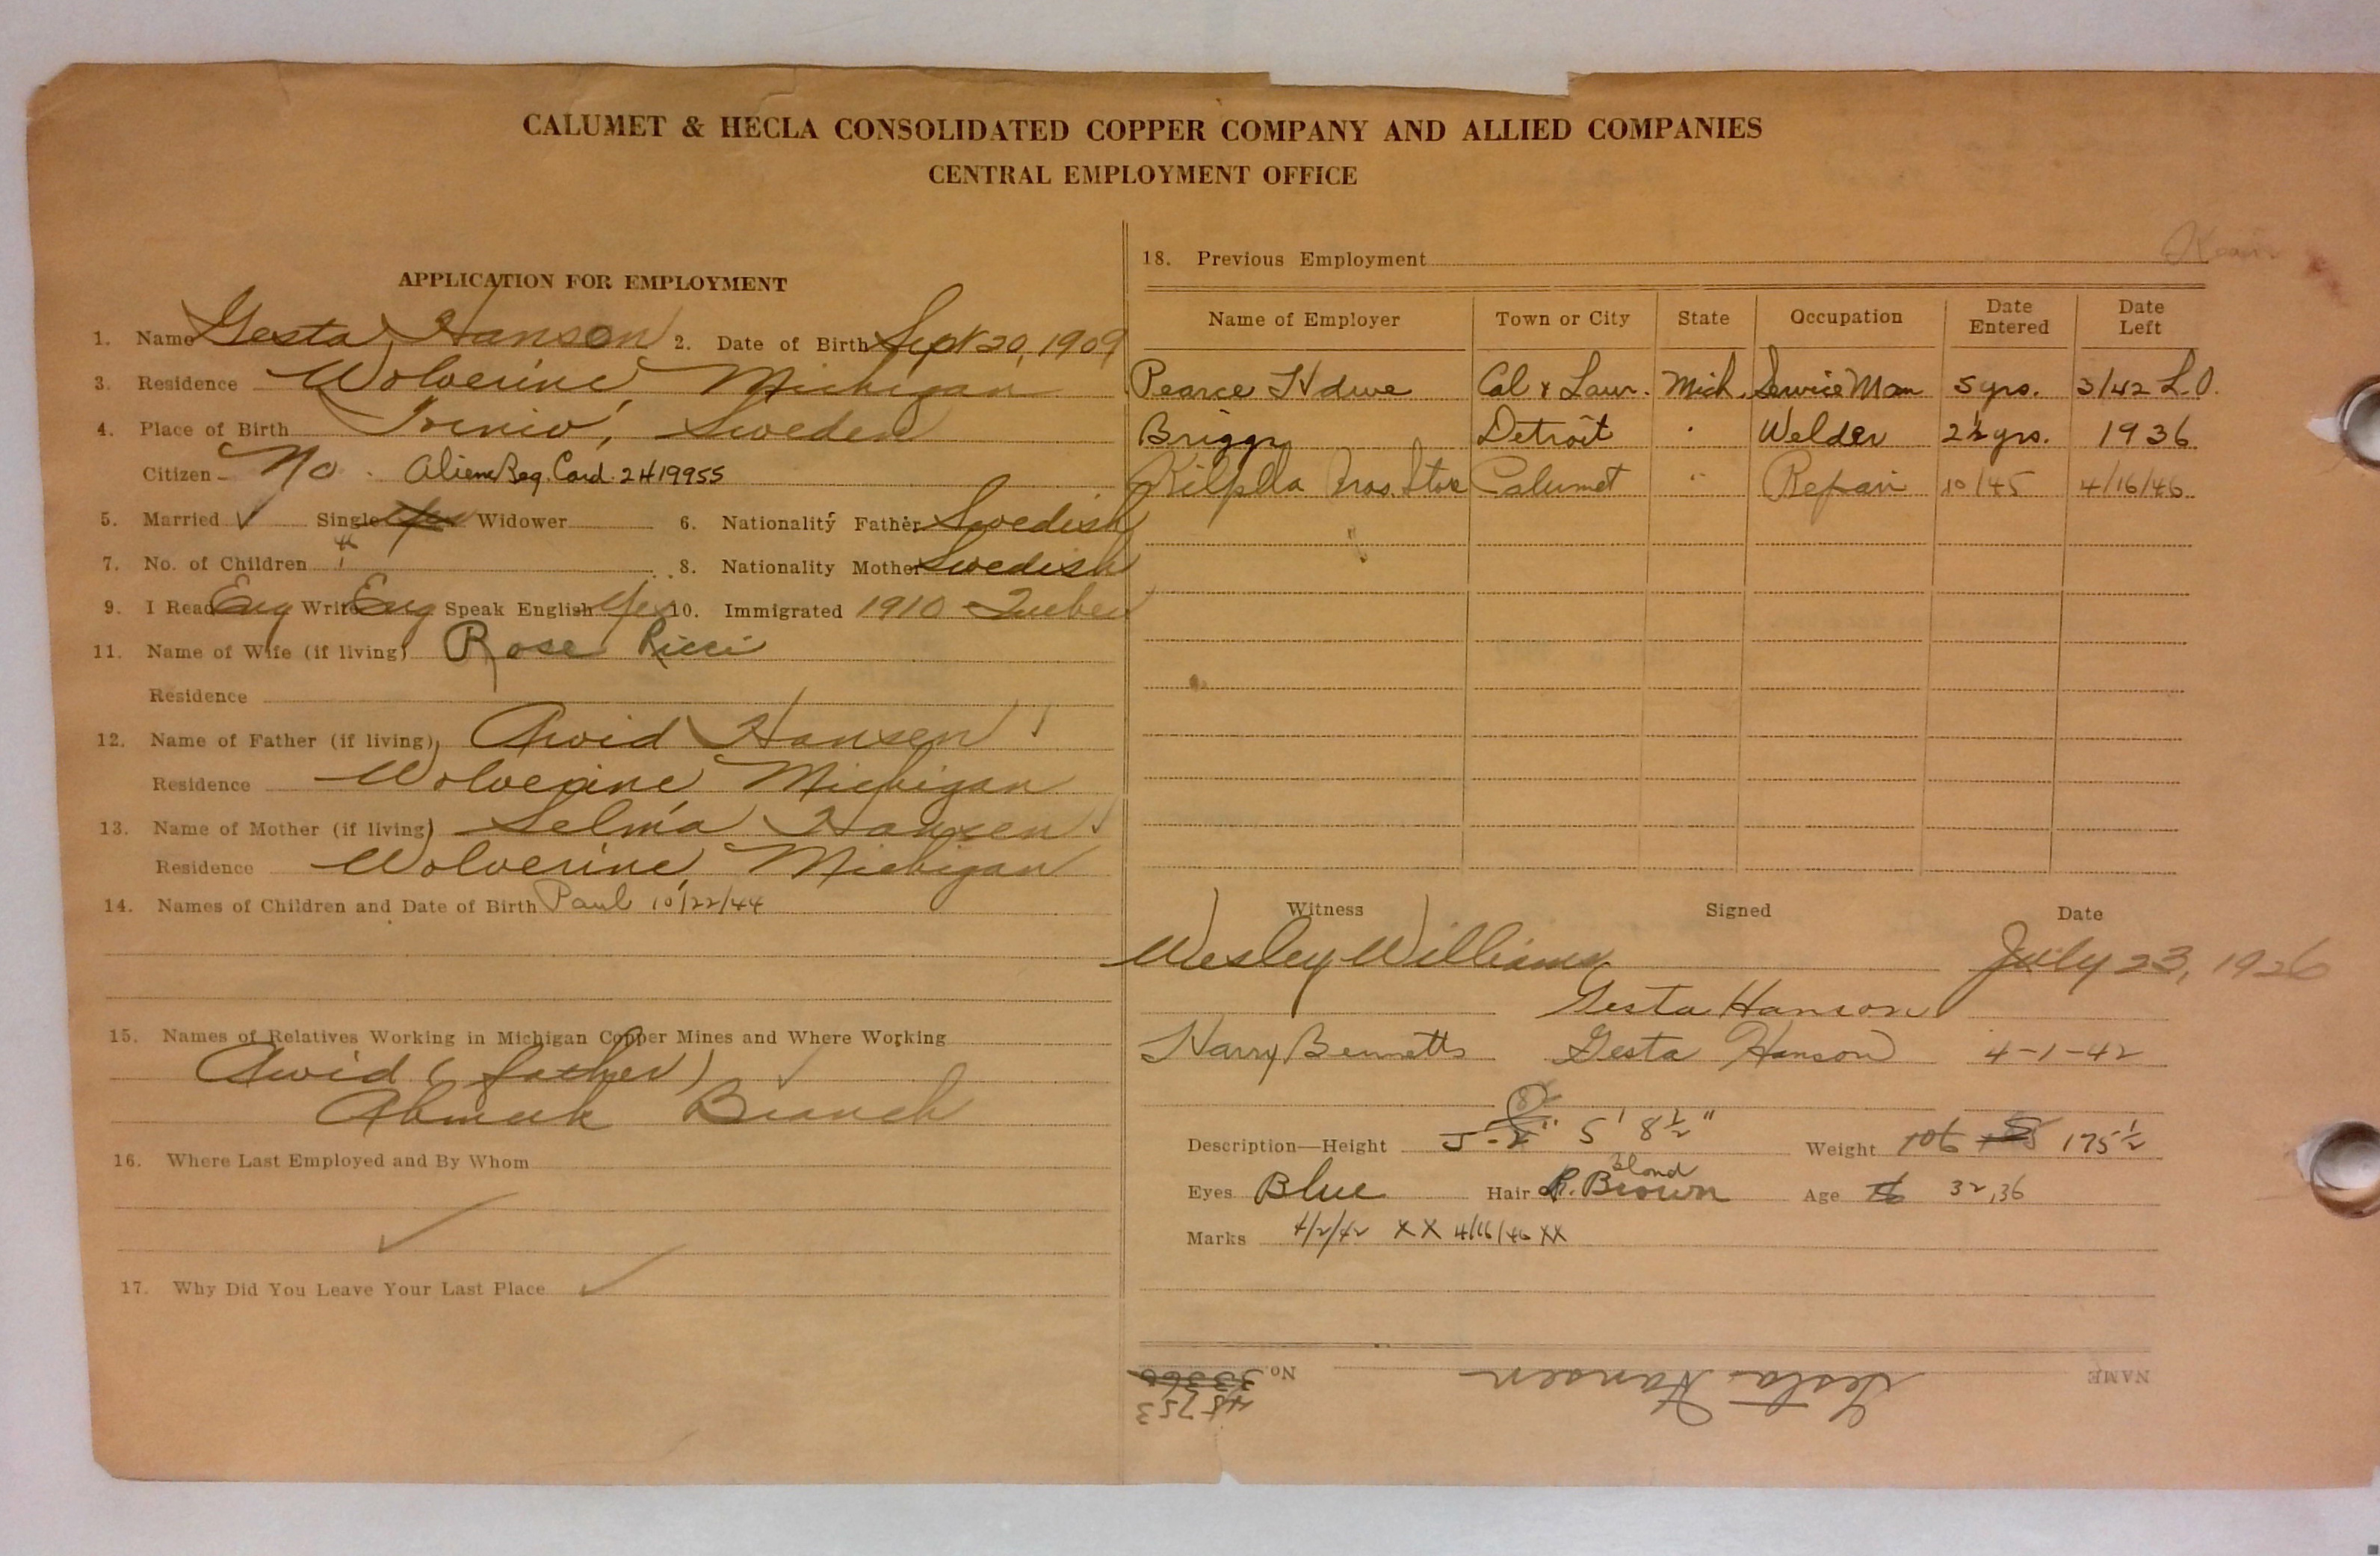 CALUMET & HECLA CONSOLIDATED COPPER COMPANY AND ALLIED COMPANIES
CENTRAL EMPLOYMENT OFFICE
APPLICATION FOR EMPLOYMENT
1. Name Gesta Hanson 2. Date of Birth Sept 20, 1909
3. Residence Wolverine, Michigan
4. Place of Birth Sweden
Citizen No. Alien Reg. Card. 2419955
5. Married ✓ Single Yes Widower 6. Nationality Father Swedish
7. No. of Children 8. Nationality Mother Swedish
9. I Read Eng Write Eng Speak English Yes 10. Immigrated 1910 Quebec
11. Name of Wife (if living) Rose Ricci
Residence
12. Name of Father (if living) Arvid Hansen
Residence Wolverine Michigan
13. Name of Mother (if living) Selma Hansen
Residence Wolverine, Michigan
14. Names of Children and Date of Birth Paul 10/22/44
15. Names of Relatives Working in Michigan Copper Mines and Where Working
Arvid (father)
Ahmeek Branch
16. Where Last Employed and By Whom
17. Why Did You Leave Your Last Place
18. Previous Employment
Name of Employer Town or City State Occupation Date Entered Date Left
Pearce Hdwe Cal & Laur. Mich. Service Man 5 yrs. 3/42 L.O.
Briggs Detroit " Welder 2½ yrs. 1936
Bros. Store Calumet " Repair 10/45 4/16/46
Witness Signed Date
Wesley Williams July 23, 1926
Gesta Hanson
Harry Bennetts Gesta Hanson 4-1-42
Description—Height 5' 8½" Weight 106 175½
Eyes Blue Hair Blond Brown Age 16 32, 36
Marks 4/2/42 XX 4/16/46 XX
NAME Gesta Hansen No. 33366
45753